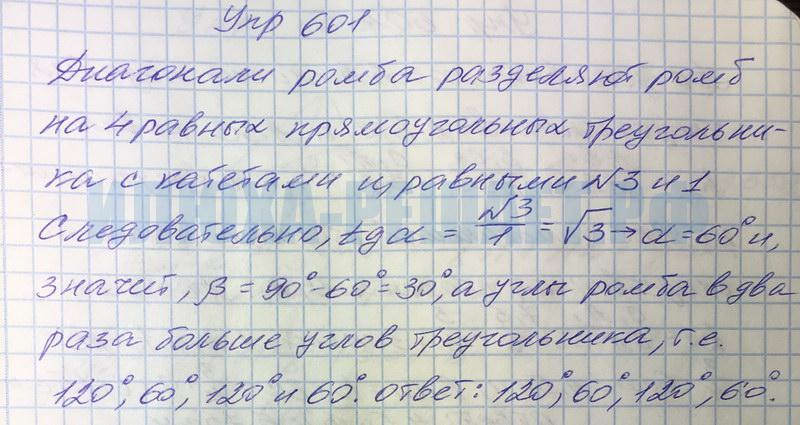 Упр 601
Диагонали ромба разделяют ромб
на 4 равных прямоугольных треугольни-
ка с катетами и равными √3 и 1
Следовательно, tgα = √3/1 = √3 → α = 60° и,
значит, β = 90° - 60° = 30°, а углы ромба в два
раза больше углов треугольника, т.е.
120°, 60°, 120° и 60°. Ответ: 120°, 60°, 120°, 60°.